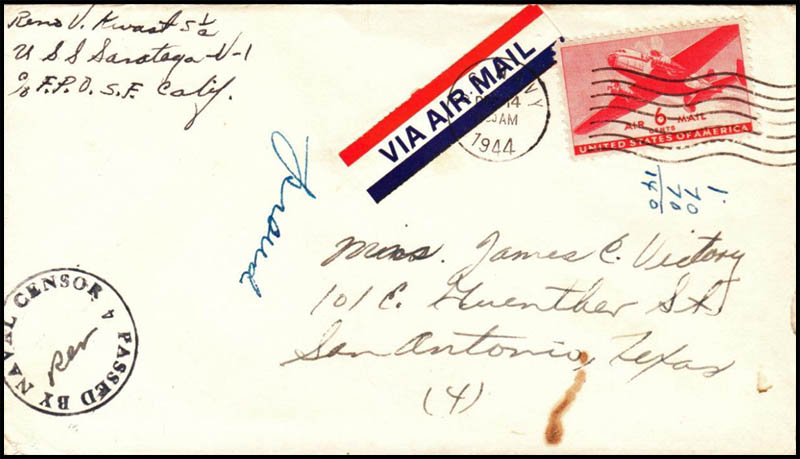 Reno V. Kwast S1/c
U S S Saratoga-V-1
c/o F.P.O. S.F. Calif.
VIA AIR MAIL
NY
DEC 14
AM
1944
AIR 6 MAIL
CENTS
UNITED STATES OF AMERICA
1.
70
70
140
Ground
Miss. James C. Victory
101 E. Guenther St.
San Antonio, Texas
(4)
PASSED BY NAVAL CENSOR 4